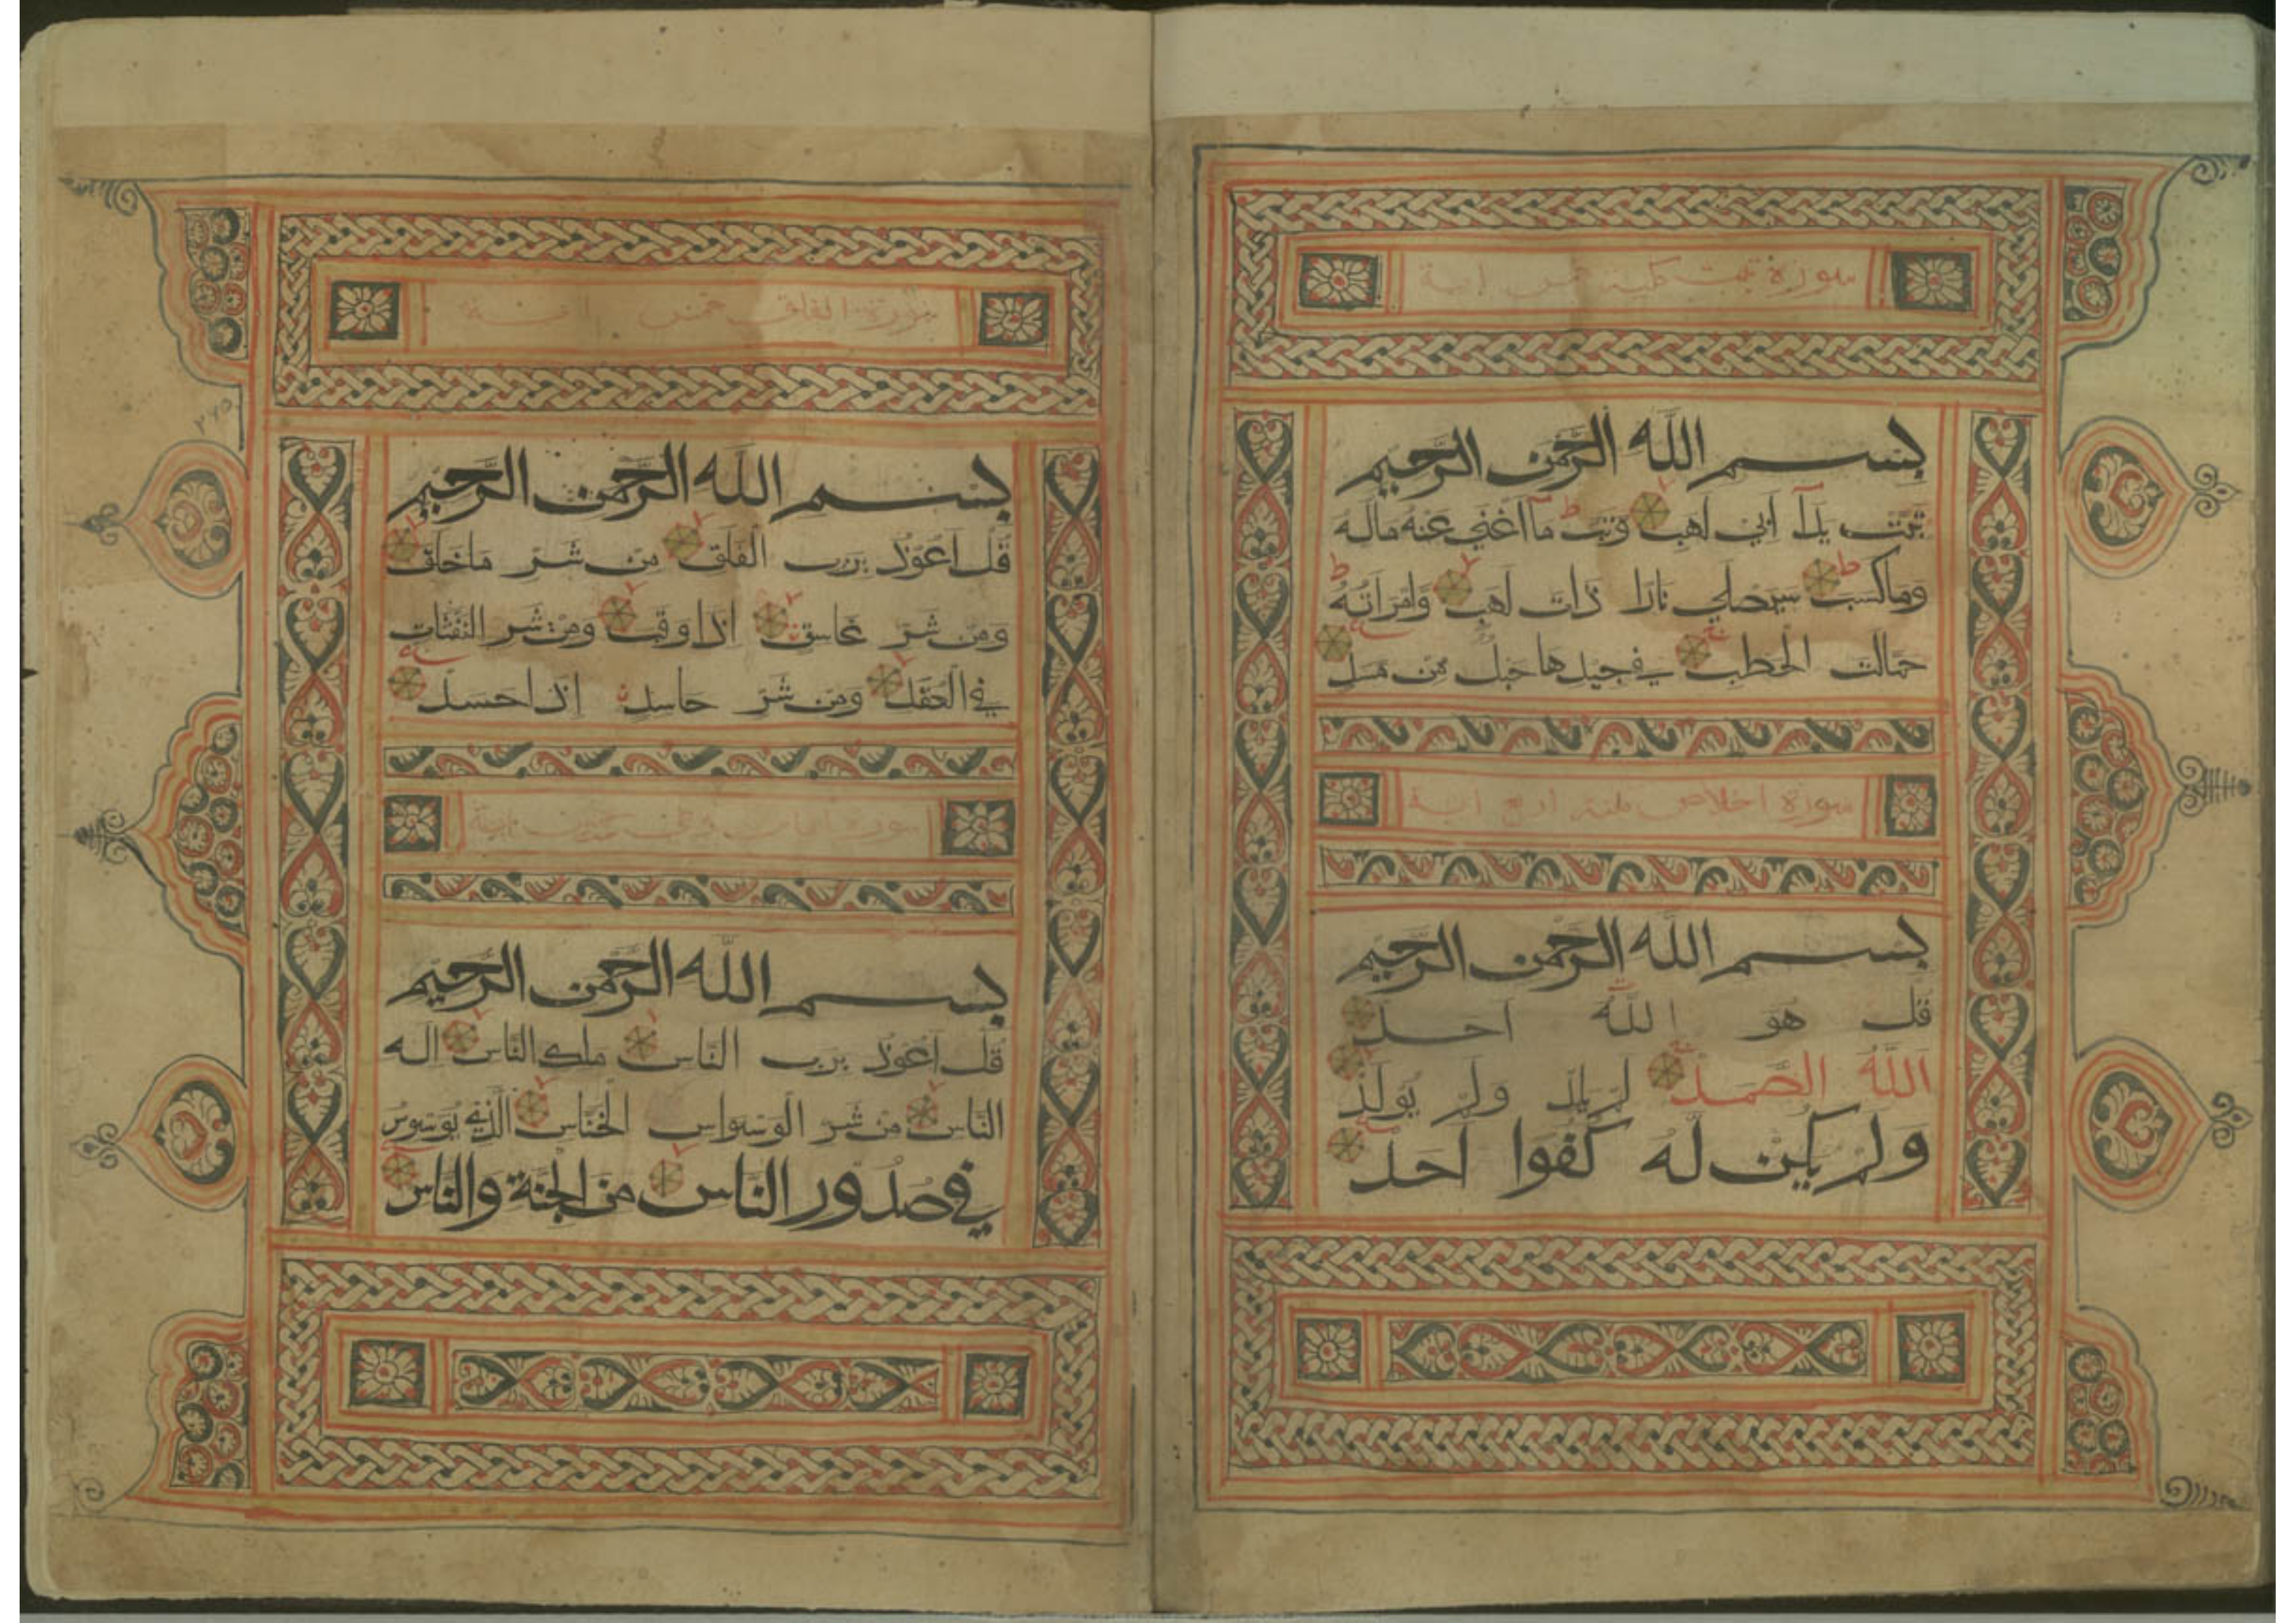 سورة تبت مكية خمس اية
بسم الله الرحمن الرحيم
تبت يدآ ابي لهب وتب ط مآ اغني عنه ماله
وماكسب ط سيصلي نارا ذات لهب وامراته ط
حمالت الحطب في جيدها حبل من مسد
سورة اخلاص مكية اربع اية
بسم الله الرحمن الرحيم
قل هو الله احد
الله الصمد لم يلد ولم يولد
ولم يكن له كفوا احد
سورة الفلق خمس اية
بسم الله الرحمن الرحيم
قل اعوذ برب الفلق من شر ماخلق
ومن شر غاسق اذا وقب ومن شر النفثات
في العقد ومن شر حاسد اذا حسد
سورة
بسم الله الرحمن الرحيم
قل اعوذ برب الناس ملك الناس اله
الناس من شر الوسواس الخناس الذي يوسوس
في صدور الناس من الجنة والناس
٢٦٥